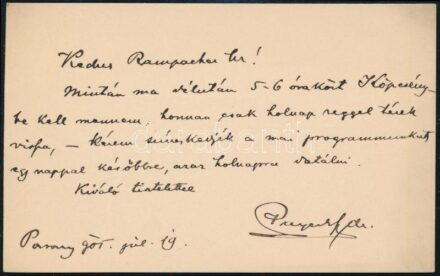 Kedves Rampacher Úr!
Miután ma délután 5-6 órakört Köpcsény-
be kell mennem, honnan csak holnap reggel térek
vissza, – kérem szíveskedjék a mai programmunkat
egy nappal későbbre, azaz holnapra datálni.
Kiváló tisztelettel
Pozsony 905. júl. 19.